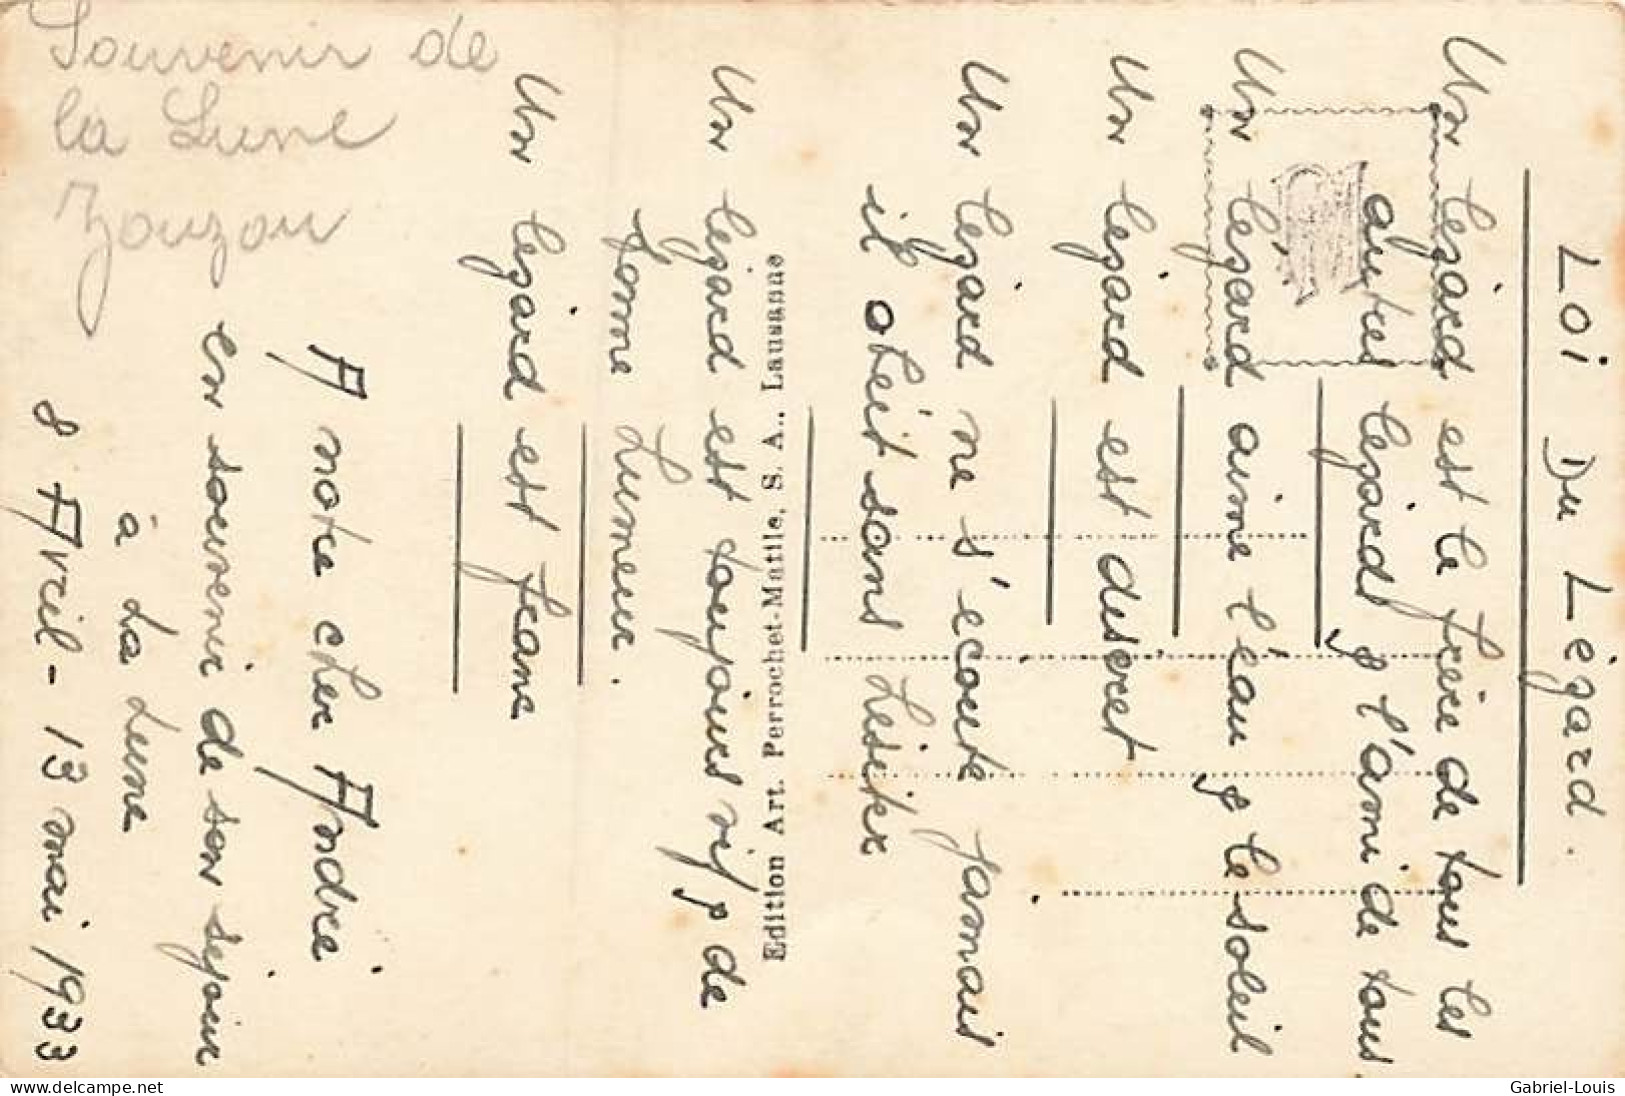 Loi Du Lézard.
Un lézard est le frère de tous les
autres lézards & l'ami de tous
Un lézard aime l'eau & le soleil
Un lézard est discret
Un lézard ne s'ecoute jamais
il obéit sans hésiter
Un lézard est toujours vif & de
bonne humeur.
Un lézard est franc
A notre cher André
en souvenir de son séjour
à La Lune
8 Avril - 13 mai 1933
Souvenir de
la Lune
Zouzou
Edition Art. Perrochet-Matile, S. A., Lausanne
delcampe.net
Gabriel-Louis